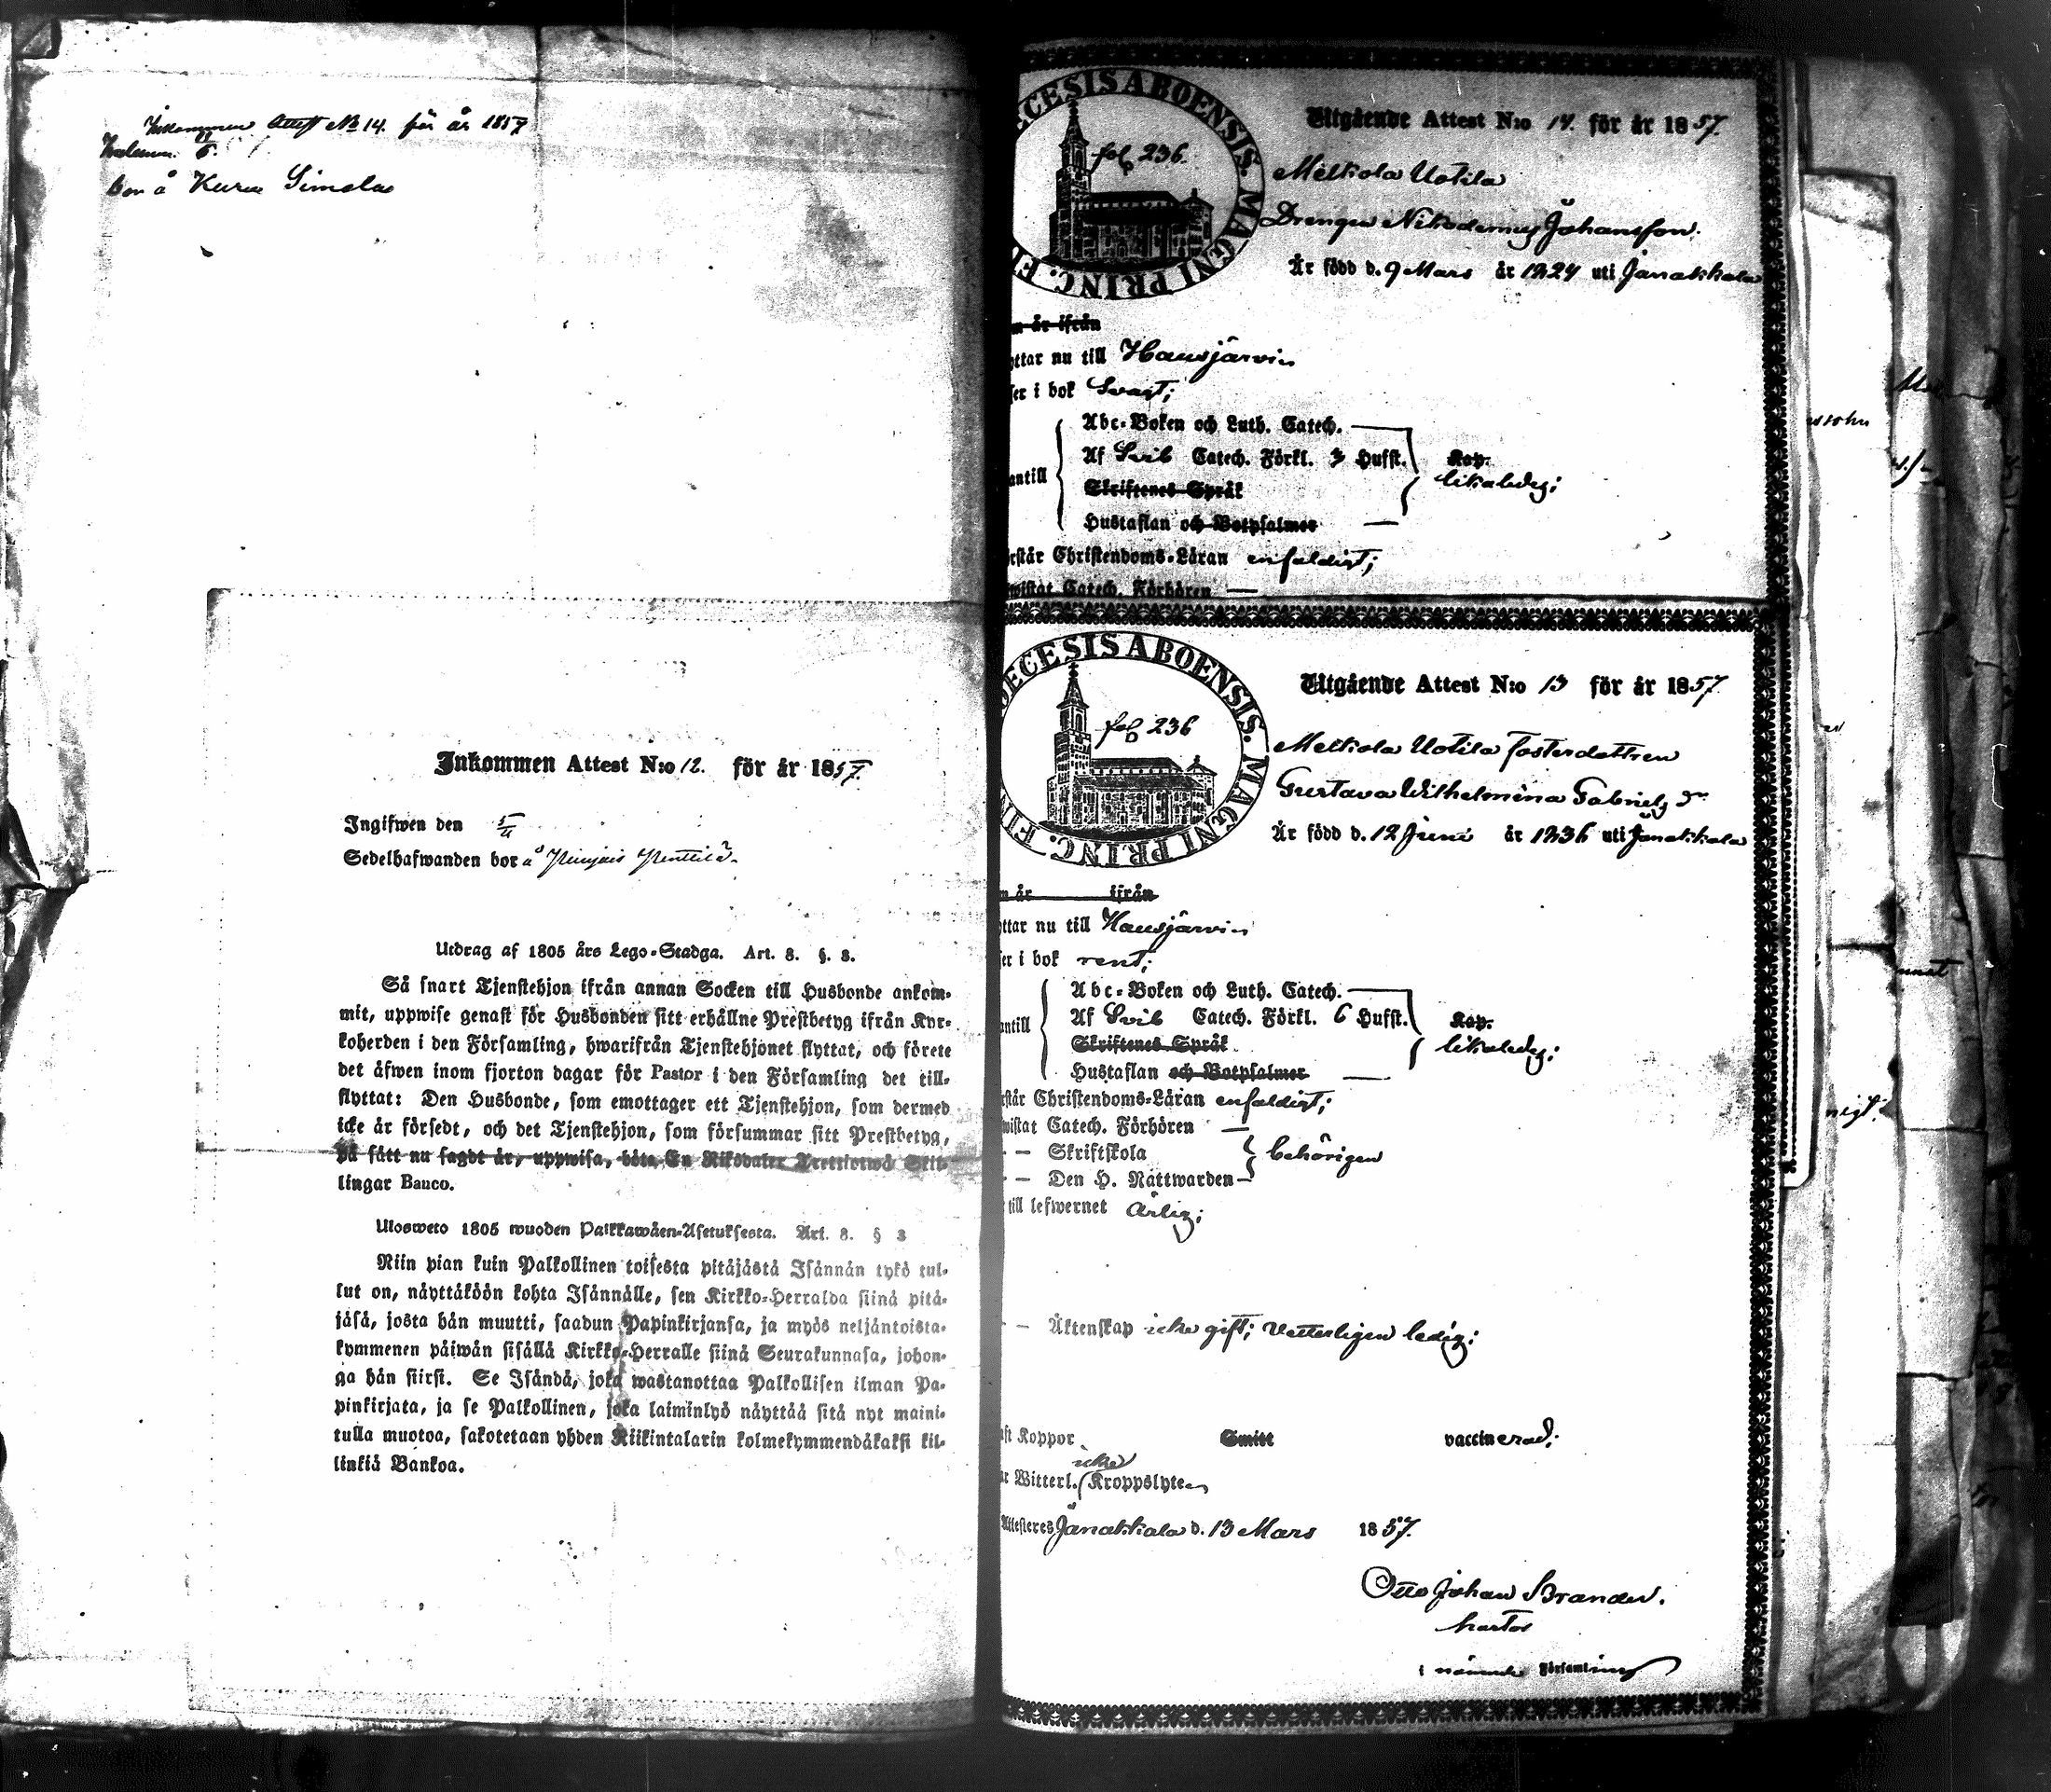 Inkommen Attest No 14. för år 1857
bor å Kuru Simola
Inkommen Attest N:o 12. för år 1857.
Ingifwen den 5/4
Sedelhafwanden bor å
Utdrag af 1805 års Lego-Stadga. Art. 8. §. 3.
Så snart Tjenstehjon ifrån annan Socken till Husbonde ankom-
mit, uppwise genast för Husbonden sitt erhållne Prestbetyg ifrån Kyr-
koherden i den Församling, hwarifrån Tjenstehjonet flyttat, och förete
det äfwen inom fjorton dagar för Pastor i den Församling det till-
flyttat: Den Husbonde, som emottager ett Tjenstehjon, som dermed
icke är försedt, och det Tjenstehjon, som försummar sitt Prestbetyg,
på sätt nu sagdt är, uppwisa, böta En Riksdaler Trettiotwå Skil-
lingar Banco.
Ulosweto 1805 wuoden Palkkawäen-Asetuksesta. Art. 8. § 3
Niin pian kuin Palkollinen toisesta pitäjästä Isännän tykö tul-
lut on, näyttäköön kohta Isännälle, sen Kirkko-Herralda siinä pitä-
jäsä, josta hän muutti, saadun Papinkirjansa, ja myös neljäntoista-
kymmenen päiwän sisällä Kirkko-Herralle siinä Seurakunnasa, johon-
ga hän siirsi. Se Isändä, joka wastanottaa Palkollisen ilman Pa-
pinkirjata, ja se Palkollinen, joka laiminlyö näyttää sitä nyt maini-
tulla muotoa, sakotetaan yhden Riikintalarin kolmekymmendäkaksi kil-
linkiä Bankoa.
ECESIS ABOENSIS. MAGNI PRINC. FI
fol 236.
Utgående Attest N:o 14. för år 1857.
Melkola Uotila
Drengen Nikodemus Johansson.
Är född d. 9 Mars år 1824 uti Janakkala
m år ifrån
yttar nu till Hausjärvi
ser i bok Svagt;
Abc-Boken och Luth. Catech.
Af Svib Catech. Förkl. 3 Hufst.
Kap.
antill
likaledes;
Skriftenes Språk
Hustaflan och Botpsalmer
örstår Christendoms-Läran enfaldigt;
wistat Catech. Förhören —
DECESIS ABOENSIS. MAGNI PRINC. FIN
fol 236
Utgående Attest N:o 13 för år 1857.
Melkola Uotila fosterdottren
Gustava Wilhelmina Gabriels dr
Är född d. 12 Juni år 1836 uti Janakkala
n år ifrån
yttar nu till Hausjärvi
ser i bok rent;
Abc-Boken och Luth. Catech.
Af Svib Catech. Förkl. 6 Hufst.
Kap.
antill
likaledes;
Skriftenes Språk
Hustaflan och Botpsalmer
rstår Christendoms-Läran enfaldigt;
wistat Catech. Förhören —
— Skriftskola
behörigen
— Den H. Nattwarden
till lefwernet ärlig;
— Äktenskap icke gift; veterligen ledig;
ft Koppor Smitt vaccinerad;
icke
är Witterl. Kroppslyte
Attesteres Janakkala d. 13 Mars 1857.
Otto Johan Brander.
Pastor
i nämnde Församling